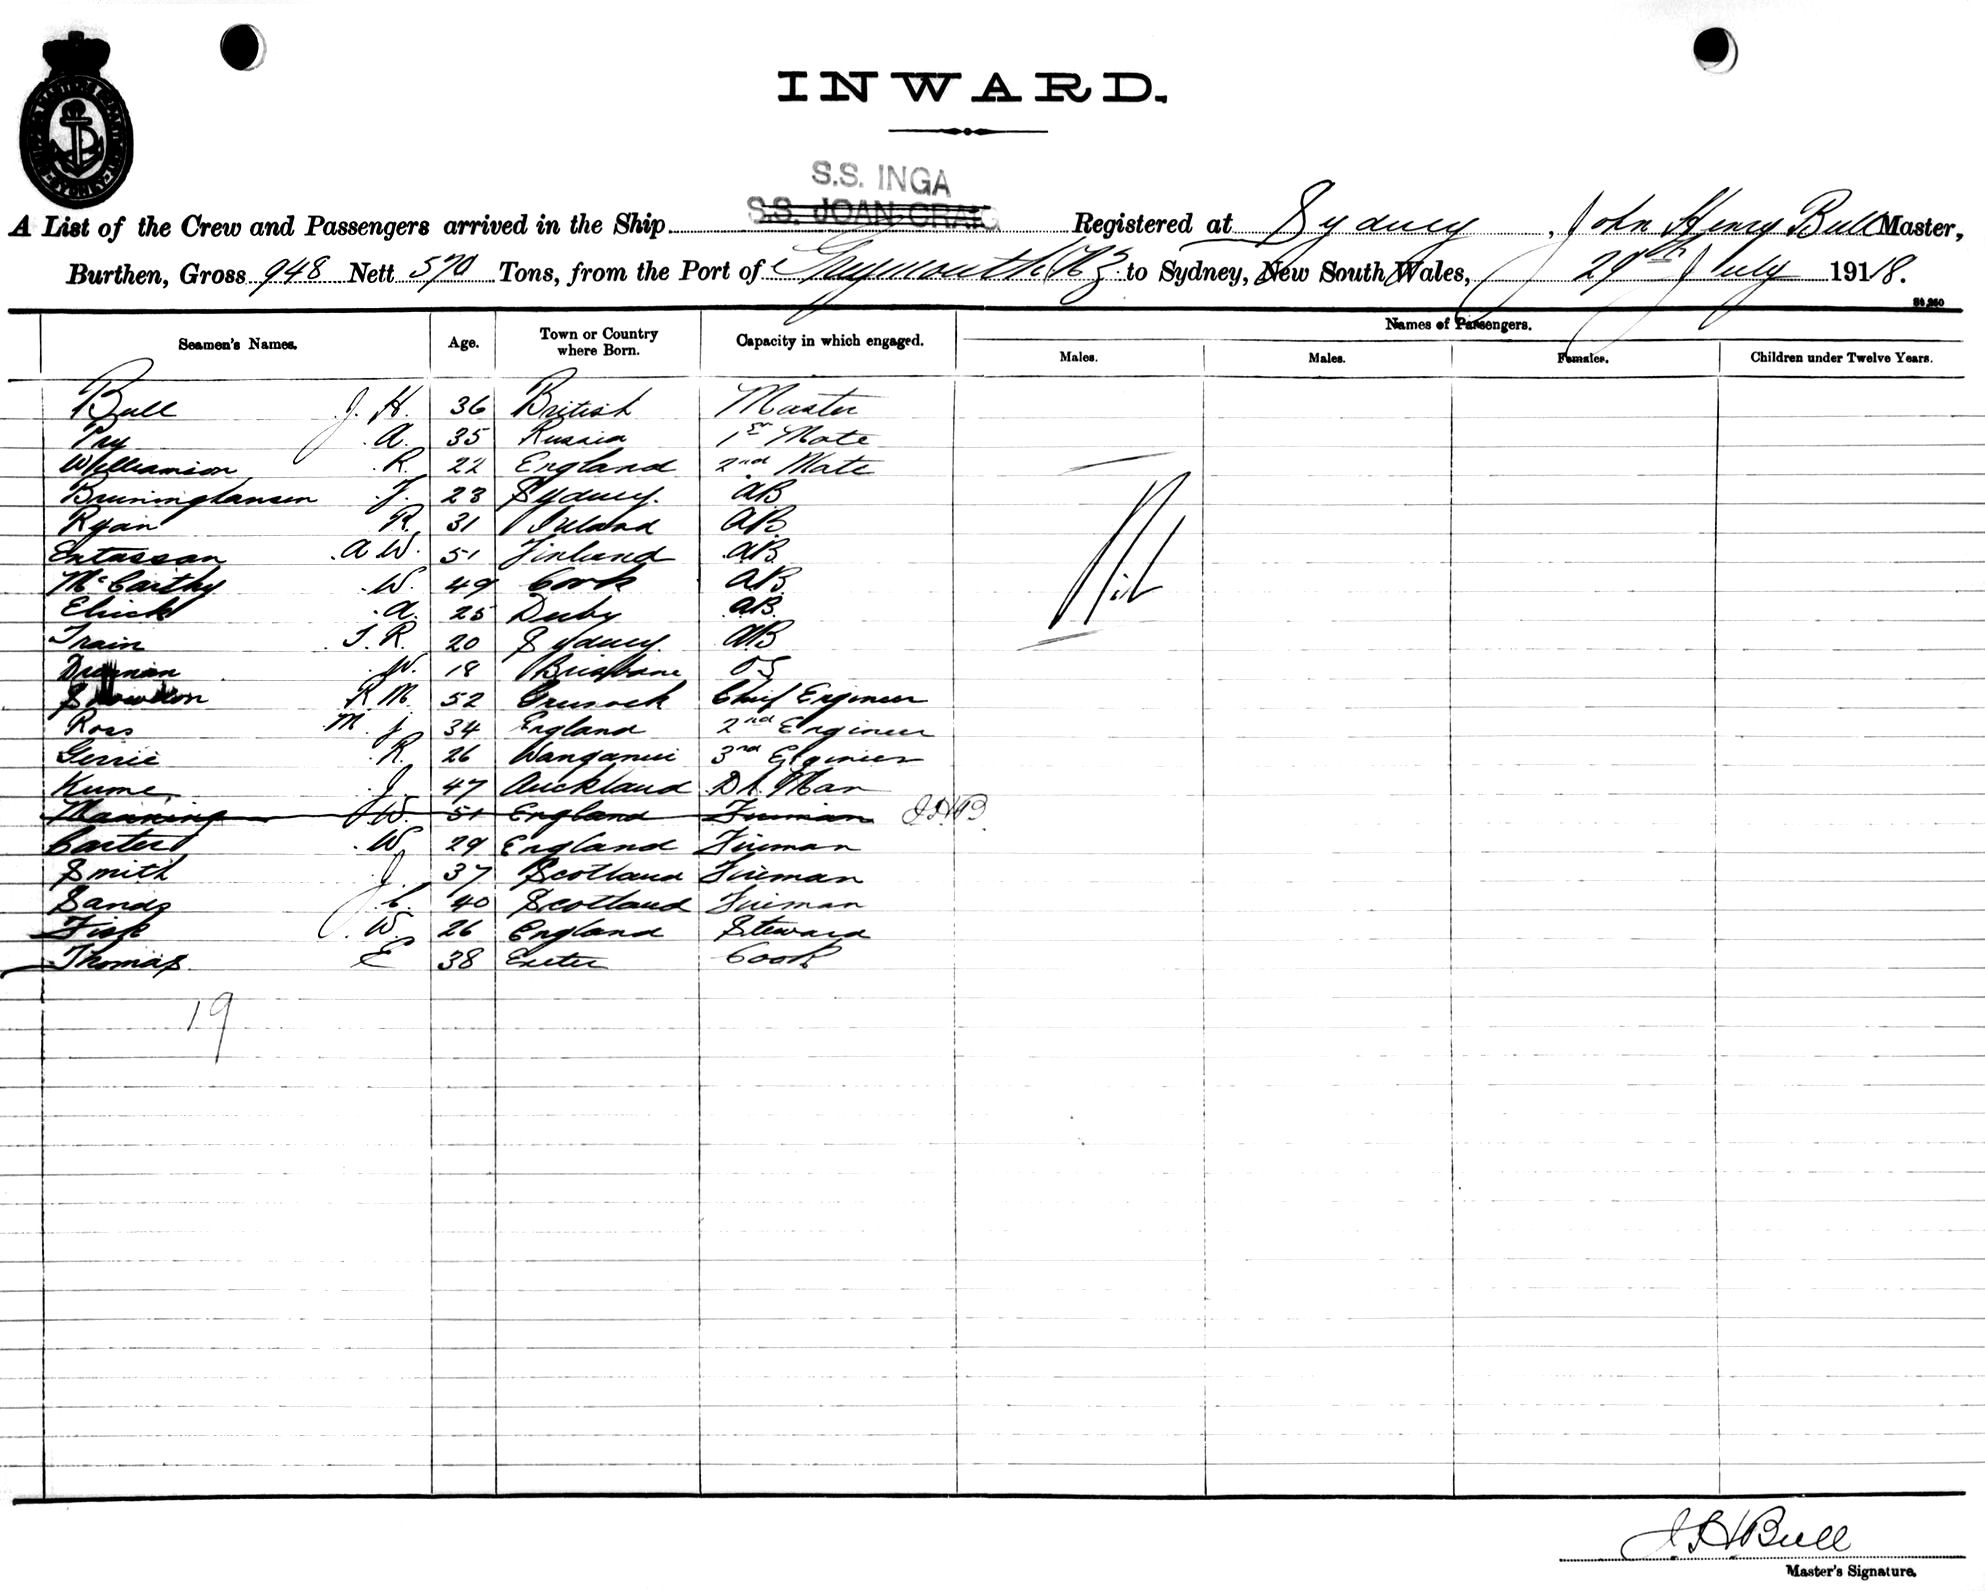 INWARD.
S.S. INGA
S.S. JOAN CRAIG
A List of the Crew and Passengers arrived in the Ship Registered at Sydney, John Henry Bull Master,
Burthen, Gross 948 Nett 570 Tons, from the Port of Greymouth NZ to Sydney, New South Wales, 29th July 1918.
Names of Passengers.
Seamen's Names. Age. Town or Country where Born. Capacity in which engaged. Males. Males. Females. Children under Twelve Years.
Bull J. H. 36 British Master
Pry A. 35 Russia 1st Mate
Williamson R. 22 England 2nd Mate
Bruninghausen F. 23 Sydney. AB
Ryan R. 31 Ireland AB
A W. 51 Finland AB
McCarthy W. 49 Cork AB
A. 25 Derby AB
Train T. R. 20 Sydney. AB
W. 18 Brisbane OS
Snowdon R M. 52 Greenock Chief Engineer
Ross M. J. 34 England 2nd Engineer
Gerrie R. 26 Wanganui 3rd Engineer
Kume J. 47 Auckland Dk Man
Manning W. 51 England Fireman JHB.
Carter W. 29 England Fireman
Smith J. 37 Scotland Fireman
Sands J. C. 40 Scotland Fireman
Fisk W. 26 England Steward
Thomas E 38 Exeter Cook
Nil
19
J H Bull
Master's Signature.